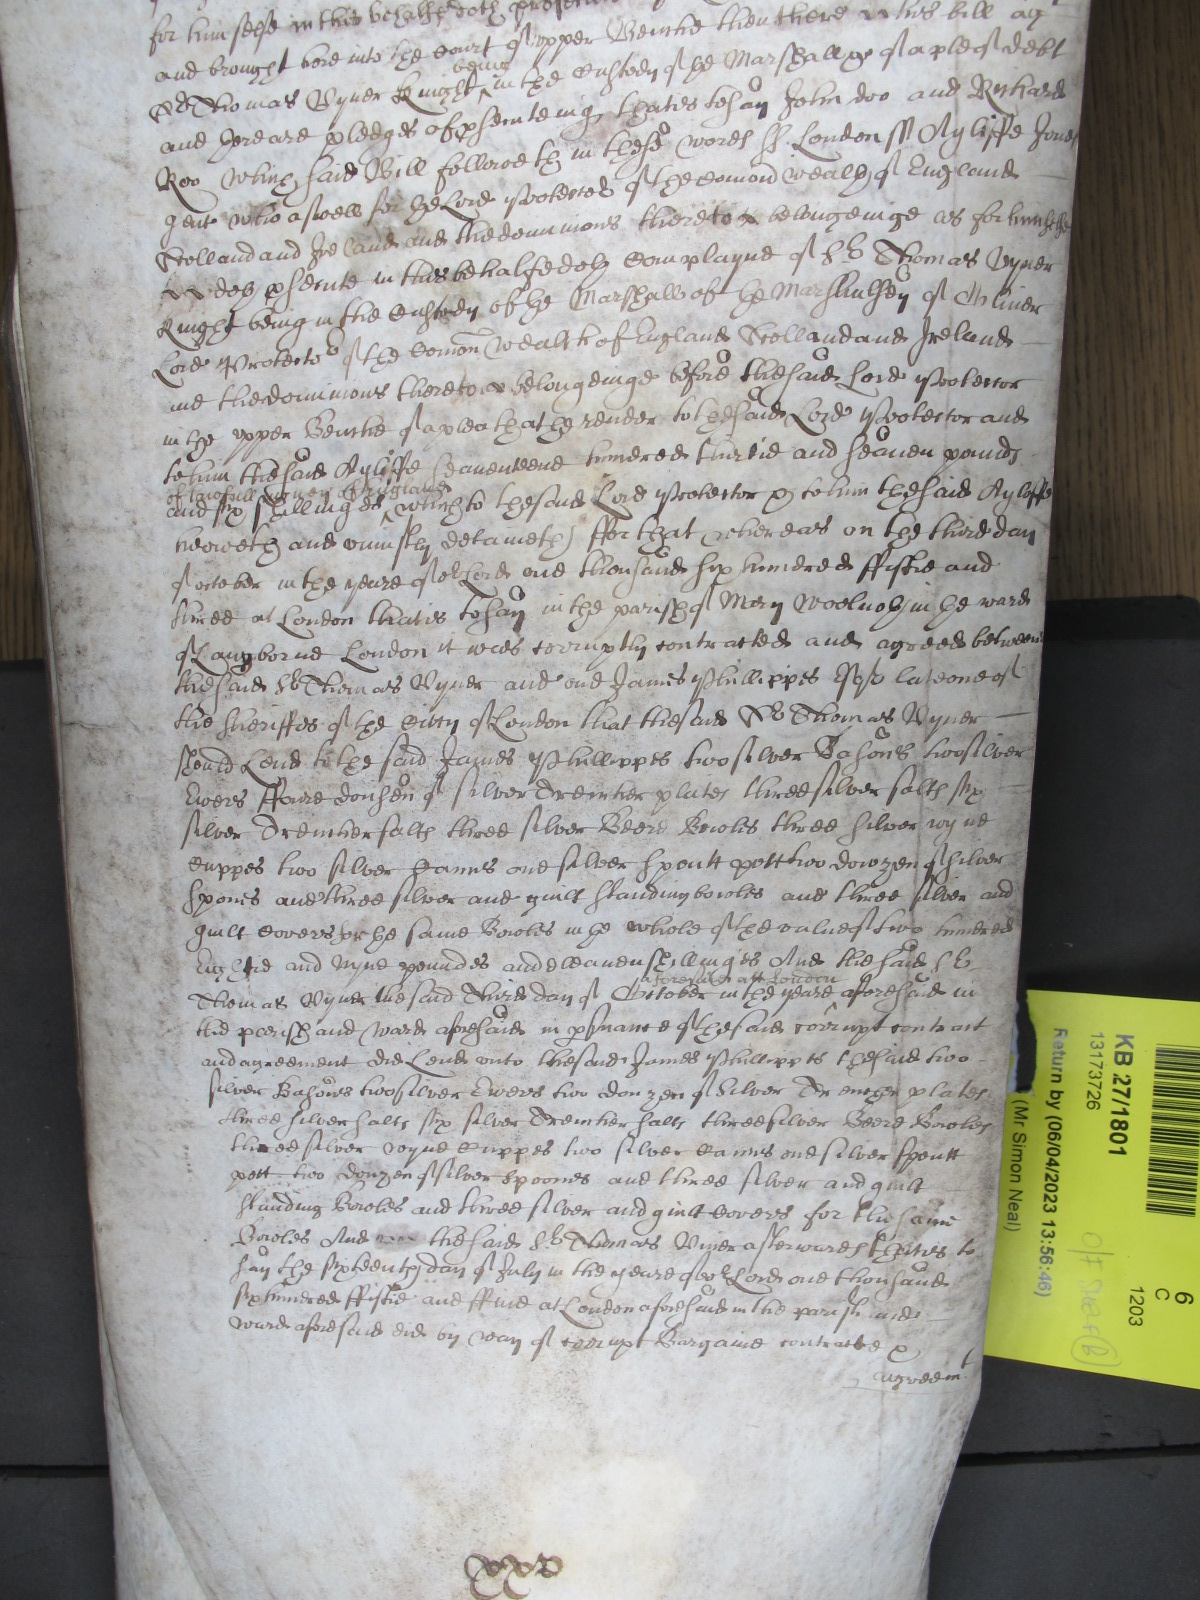 for himselfe in this behalfe doth prosecute
and brought here into the Court of upper Bench then there xx his bill ag
Sr Thomas Vyner Knight being in the Custody of the Marshall &c of a ple of debt
and there are pledges of psecuteing thatis to say John doo and Richard
Roo which said Bill followeth in these words ss. London ss Ayliffe Jones
gent who aswell for the Lord Protector of the Comonwealth of England
Scotland and Ireland and the dominions thereto belongeinge as for himselfe
xx doth psecute in this behalfe doth Complayne of Sr Thomas Vyner
Knight being in the Custody of the Marshall of the Marshalsey of Oliver
Lord Protector of the Comonwealth of England Scotland and Ireland
and the dominions thereto belongeinge before the said Lord Protector
in the upper Bench of a plea that he render to the said Lord Protector and
to him the said Ayliffe Seaventeene hundred thirtie and Seaven pounds
of lawfull money of England
and six shillinges which to the said Lord Protector & to him the said Ayliffe
he oweth and uniustly detaineth ffor that whereas on the third day
of october in the yeare of or Lord one thousand six hundred fiftie and
three at London thatis to say in the parish of Mary Woolnoth in the ward
of Langborne London it was corruptly contracted and agreed betweene
the said Sr Thomas Vyner and one James Phillippes Esqr late one of
the sheriffes of the Citty of London that the said Sr Thomas Vyner
should Lend to the said James Phillippes two silver Basons two silver
Ewers ffowre dousen of silver Trencher plates three silver salts six
silver Trencher salts three silver Beere Bowles three silver wyne
Cuppes two silver Canns one silver spoutt pott two dowzen of silver
spones and three silver and guilt standing bowles and three silver and
guilt Covers for the same Bowles in the whole of the value of two hundred
Eightie and Nyne poundes and eleaven shillinges And the said Sr
Thomas Vyner the said Third day of October in the yeare aforesaid in
aforesaid att London
the parish and ward aforesaid in psuance of the said corrupt contract
and agreement did Lend unto the said James Phillippes the said two
silver Basons two silver Ewers two donzen of Silver Trencher plates
three silver salts six silver Trencher salts three silver Beere Bowles
three silver wyne Cuppes two silver Canns one silver spoutt
pott two dowzen of silver spoones and three silver and guilt
standing Bowles and three silver and guilt Covers for the same
Bowles And the said Sr Thomas Viner afterwards thatis to
say the sixteenth day of July in the yeare of or Lord one thousand
six hundred ffiftie and ffive at London aforesaid in the parish and
ward aforesaid did by way of corrupt Bargaine contracte &
agreemt
KB 27/1801
13173726
Return by (06/04/2023 13:56:46)
(Mr Simon Neal)
6
C
1203